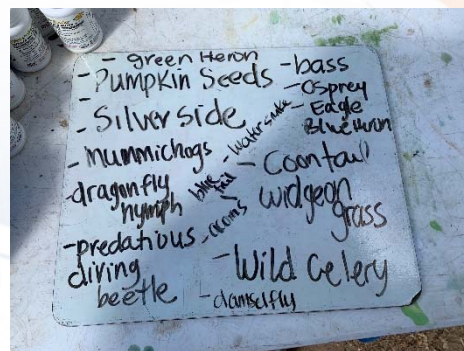 - green Heron
- Pumpkin Seeds
- Silverside
- Mummichogs
- dragonfly
nymph
- predatious
diving
beetle
- bass
- osprey
- Eagle
Blue Heron
- Water snake
blue
- acorns
- Coontail
widgeon
grass
- Wild Celery
- damselfly